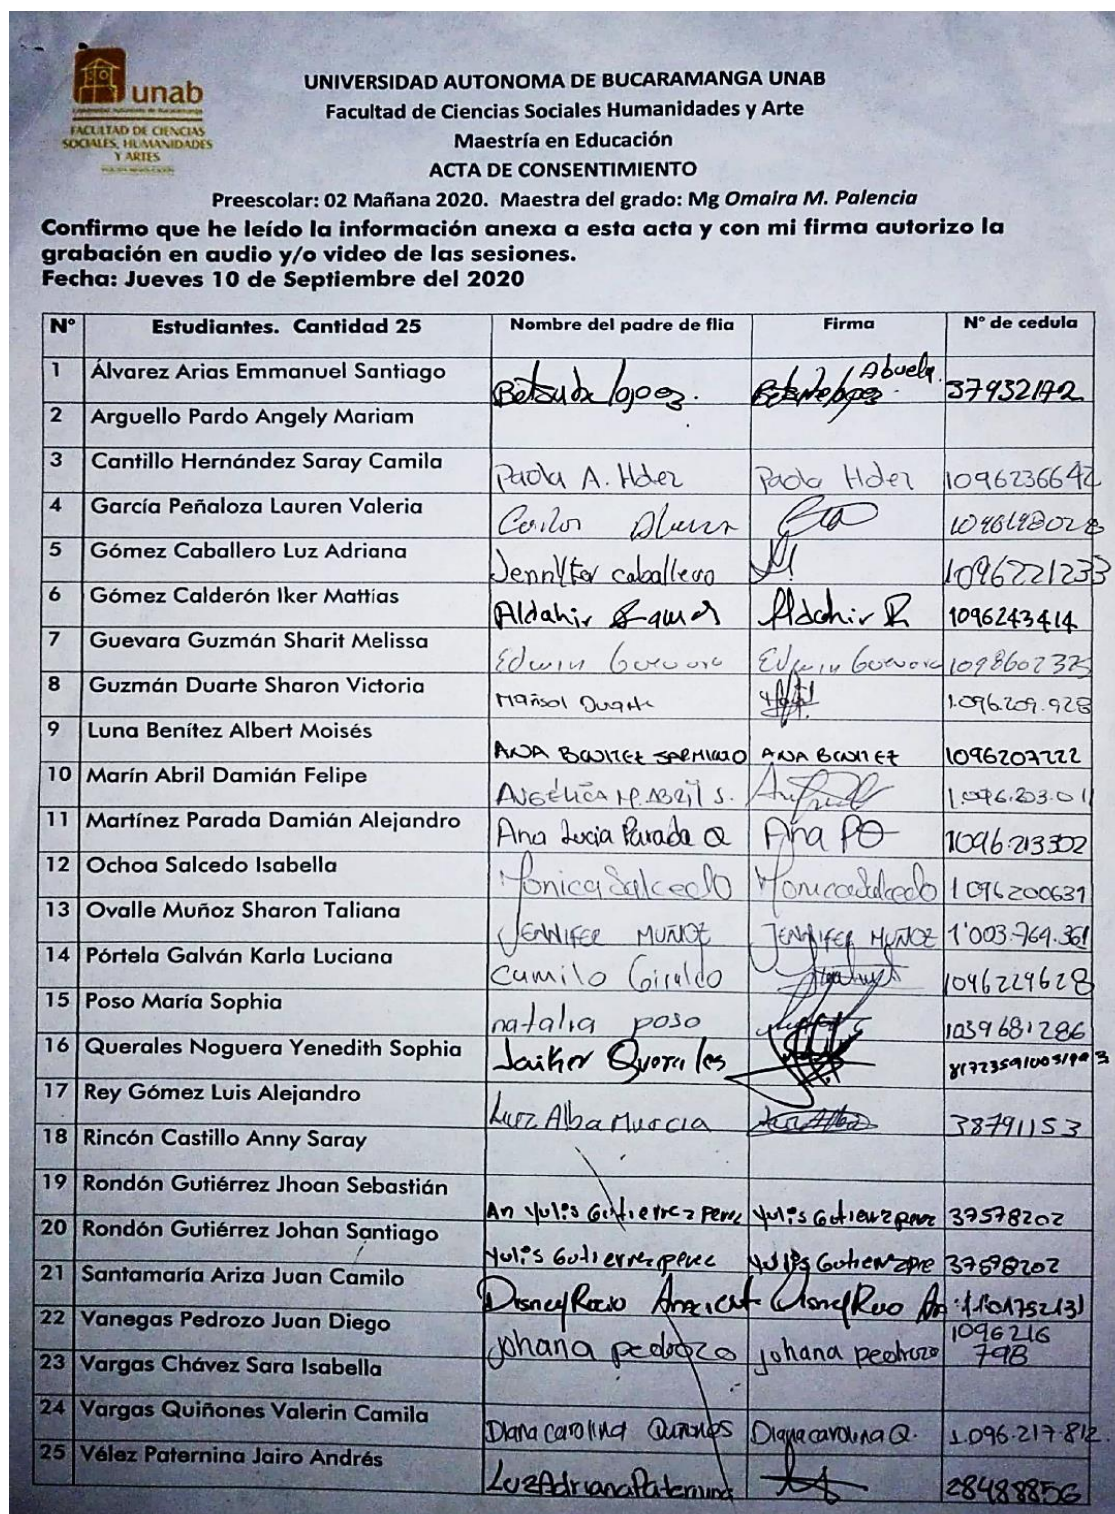 unab
FACULTAD DE CIENCIAS
SOCIALES, HUMANIDADES
Y ARTES
UNIVERSIDAD AUTONOMA DE BUCARAMANGA UNAB
Facultad de Ciencias Sociales Humanidades y Arte
Maestría en Educación
ACTA DE CONSENTIMIENTO
Preescolar: 02 Mañana 2020. Maestra del grado: Mg Omaira M. Palencia
Confirmo que he leído la información anexa a esta acta y con mi firma autorizo la
grabación en audio y/o video de las sesiones.
Fecha: Jueves 10 de Septiembre del 2020
N° Estudiantes. Cantidad 25 Nombre del padre de flia Firma N° de cedula
1 Álvarez Arias Emmanuel Santiago lopez. Abuela. 37932172
2 Arguello Pardo Angely Mariam
3 Cantillo Hernández Saray Camila Paola A. Hdez Paola Hdez 1096236642
4 García Peñaloza Lauren Valeria Carlos
5 Gómez Caballero Luz Adriana Jennyfer caballero 1096221233
6 Gómez Calderón Iker Mattías Aldahir Ramos Aldahir R 1096243414
7 Guevara Guzmán Sharit Melissa Edwin Guevara Edwin Guevara 1098602325
8 Guzmán Duarte Sharon Victoria Marisol Duarte 1.096.209.928
9 Luna Benítez Albert Moisés ANA BENITEZ SARMIENTO ANA BENITEZ 1096207222
10 Marín Abril Damián Felipe ANGELICA M. ABRIL S. 1.096.203.01
11 Martínez Parada Damián Alejandro Ana Lucia Parada Q Ana PQ 1096213302
12 Ochoa Salcedo Isabella Monica Salcedo Monica Salcedo 1096200631
13 Ovalle Muñoz Sharon Taliana JENNIFER MUÑOZ JENNIFER MUÑOZ 1'003.764.361
14 Pórtela Galván Karla Luciana Camilo Giraldo 1096229628
15 Poso María Sophia natalia poso 1039681286
16 Querales Noguera Yenedith Sophia Jaiker Querales
17 Rey Gómez Luis Alejandro Luz Alba Murcia Luz Alba 38791153
18 Rincón Castillo Anny Saray
19 Rondón Gutiérrez Jhoan Sebastián An Yulis Gutierrez Perez Yulis Gutierrez perez 37578202
20 Rondón Gutiérrez Johan Santiago Yulis Gutierrez perez Yulis Gutierrez pre 37578202
21 Santamaría Ariza Juan Camilo Disney Rocio
22 Vanegas Pedrozo Juan Diego johana pedrozo johana pedrozo 1096216
798
23 Vargas Chávez Sara Isabella
24 Vargas Quiñones Valerin Camila Diana carolina Quiñones Diana carolina Q. 1.096.217.812.
25 Vélez Paternina Jairo Andrés Luz Adriana Paternina 28488856